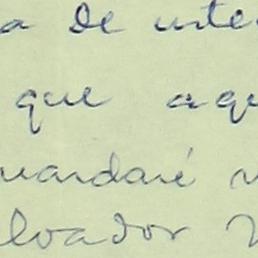 a de inte
que aqu
uardaré
lvador